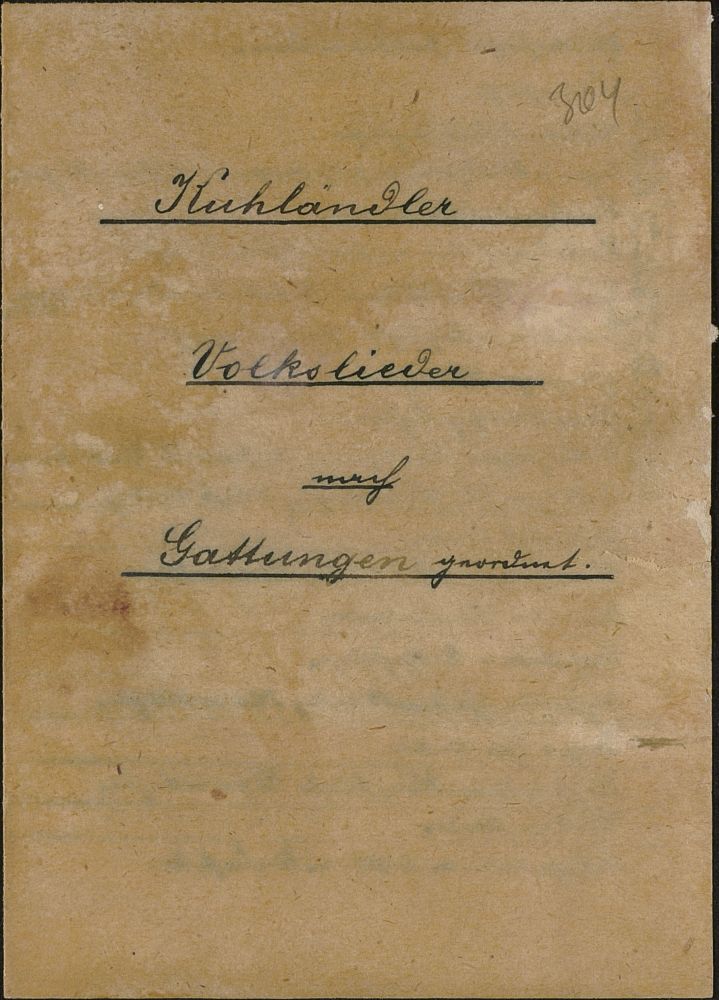 304
Kuhländler
Volkslieder
nach
Gattungen geordnet.